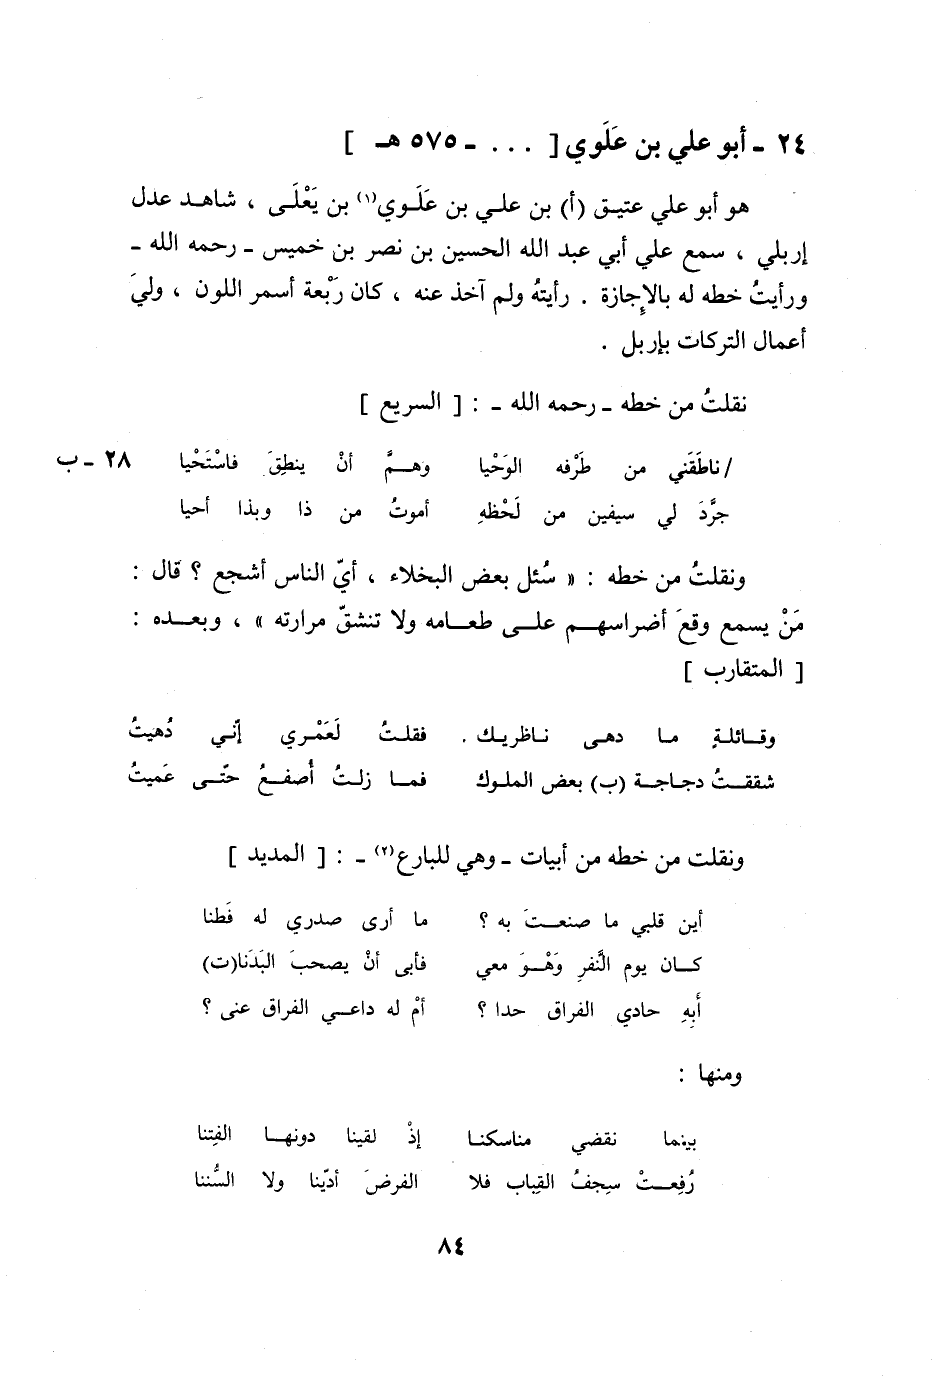 ٢٤ ـ أبو علي بن عَلَوي [ ... ـ ٥٧٥ هـ ]
هو أبو علي عتيـق (أ) بن علـي بن عَلَـوي(١) بن يَعْلَـى ، شاهـد عدل
إربلي ، سمع علي أبي عبد الله الحسين بن نصر بن خميس ـ رحمه الله ـ
ورأيتُ خطه له بالإجازة . رأيتهُ ولم آخذ عنه ، كان رَبْعة أسمر اللون ، وليَ
أعمال التركات بإربل .
نقلتُ من خطه ـ رحمه الله ـ : [ السريع ]
/ناطَقَني من طَرْفه الوَحْيا وهـمَّ أنْ ينطِقَ فاسْتَحْيا ٢٨ ـ ب
جرَّدَ لي سيفين من لَحْظهِ أموتُ من ذا وبذا أحيا
ونقلتُ من خطه : « سُئل بعض البخلاء ، أيّ الناس أشجع ؟ قال :
مَنْ يسمع وقعَ أضراسهـم علـى طعـامه ولا تنشقّ مرارته » ، وبعـده :
[ المتقارب ]
وقـائلةٍ مـا دهى نـاظريـك . فقلـتُ لَعَمْـري إنّـي دُهيتُ
شققـتُ دجـاجـة (ب) بعض الملـوك فمـا زلـتُ أُصفـعُ حتّـى عَميتُ
ونقلت من خطه من أبيات ـ وهي للبارع(٢) ـ : [ المديد ]
أين قلبي ما صنعـتَ به ؟ ما أرى صدري له فَطنا
كـان يوم النَّفرِ وَهْـوَ معي فأبى أنْ يصحبَ البَدَنا(ت)
أَبِهِ حادي الفراق حدا ؟ أمْ له داعـي الفراق عنى ؟
ومنها :
بينما نقضي مناسكنـا إذْ لقينا دونهـا الفِتنا
رُفِعـتْ سجفُ القِباب فلا الفرضَ أدّينا ولا السُّننا
٨٤